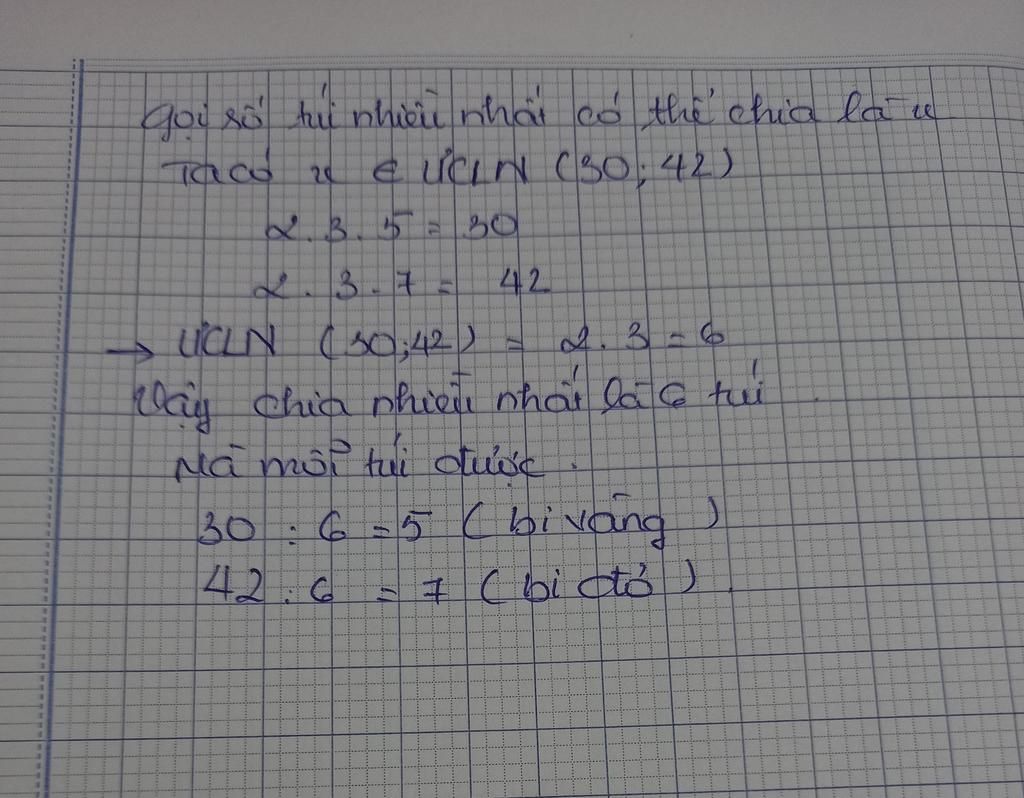 Gọi số túi nhiều nhất có thể chia là x
Ta có x ∈ ƯCLN (30; 42)
2.3.5 = 30
2.3.7 = 42
→ ƯCLN (30;42) = 2.3 = 6
Vậy chia nhiều nhất là 6 túi.
Mà mỗi túi được.
30 : 6 = 5 (bi vàng)
42 : 6 = 7 (bi đỏ).